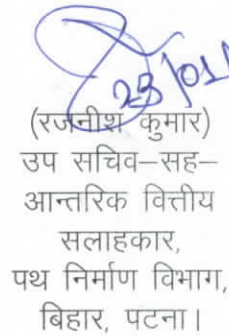 23/01/
(रजनीश कुमार)
उप सचिव–सह–
आन्तरिक वित्तीय
सलाहकार,
पथ निर्माण विभाग,
बिहार, पटना।